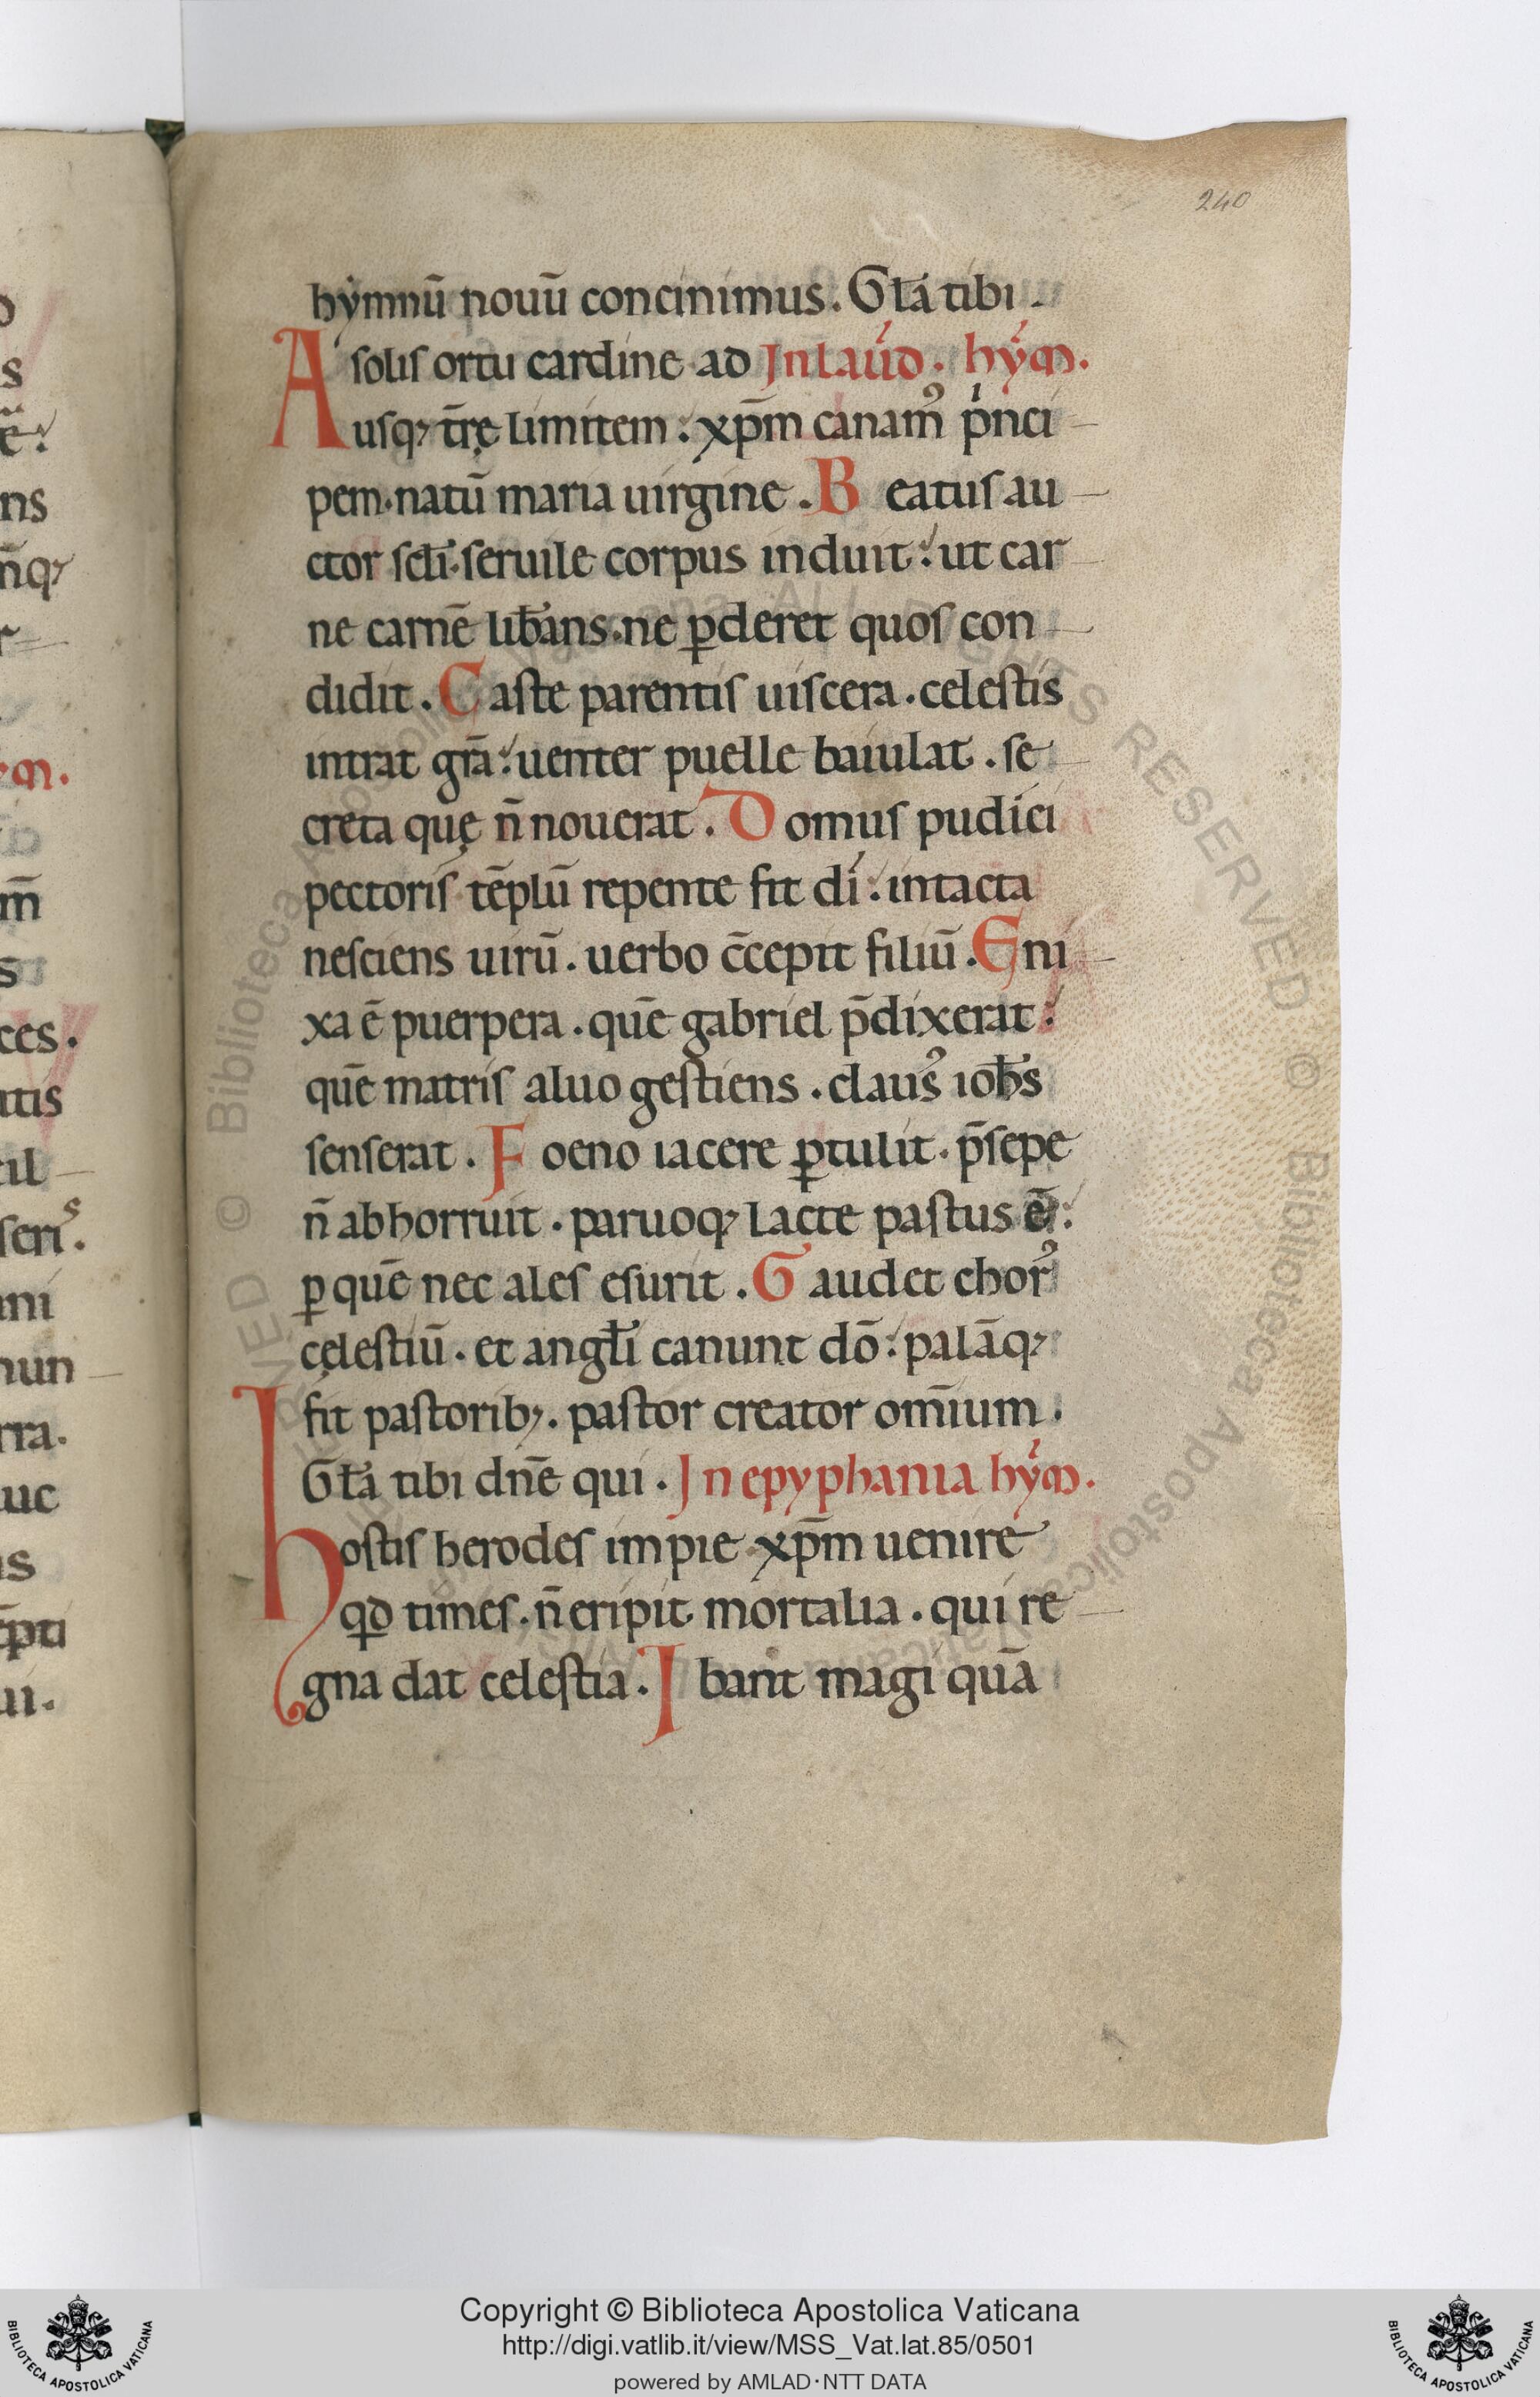 240
hẏmnū nouū concinimus. Gła tibi.
A solis ortu cardine ad Jn laud. hẏm.
usq; tr̄ę limitem: xp̄m canamꝰ pͥnci
pem. natū maria uirgine. Beatus au
ctor scłi. seruile corpus induit: ut car
ne carnē lib̄ans. ne ꝑderet quos con
didit. Caste parentis uiscera. celestis
intrat gr̄a: uenter puelle baiulat. se
creta quę n̄ nouerat. Domus pudici
pectoris tēplū repente fit di: intacta
nesciens uirū. uerbo c̄cepit filiū. Eni
xa ē puerpera. quē gabriel p̄dixerat:
quē matris aluo gestiens. clausꝰ ioħs
senserat. Foeno iacere ꝑtulit. p̄sepe
n̄ abhorruit. paruoq; lacte pastus ē:
ꝑ quē nec ales esurit. Gaudet chorꝰ
cęlestiū. et angłi canunt dō: palāq;
fit pastorib;. pastor creator om̄ium.
Gła tibi dn̄e qui. Jn epyphania hẏm.
hostis herodes impie xp̄m uenire
qd times. n̄ eripit mortalia. qui re
gna dat celestia. Ibant magi quā
Copyright © Biblioteca Apostolica Vaticana
http://digi.vatlib.it/view/MSS_Vat.lat.85/0501
powered by AMLAD·NTT DATA
BIBLIOTECA APOSTOLICA VATICANA
BIBLIOTECA APOSTOLICA VATICANA